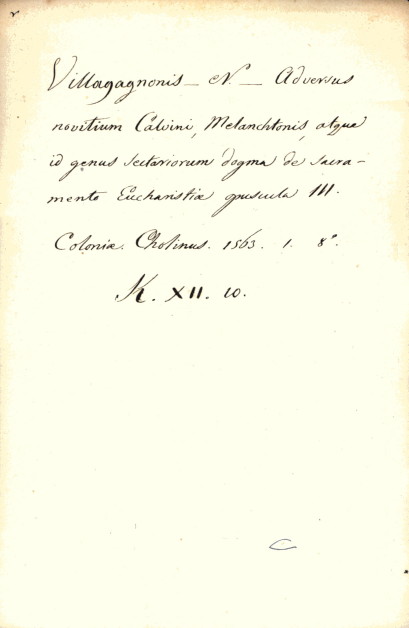 Villagagnonis _ N. _ Adversus
novitium Calvini, Melanchtonis, atque
id genus sectariorum dogma de sacra-
mento Eucharistiæ opuscula III.
Coloniæ. Cholinus. 1563. 1. 8º.
K. XII. 10.